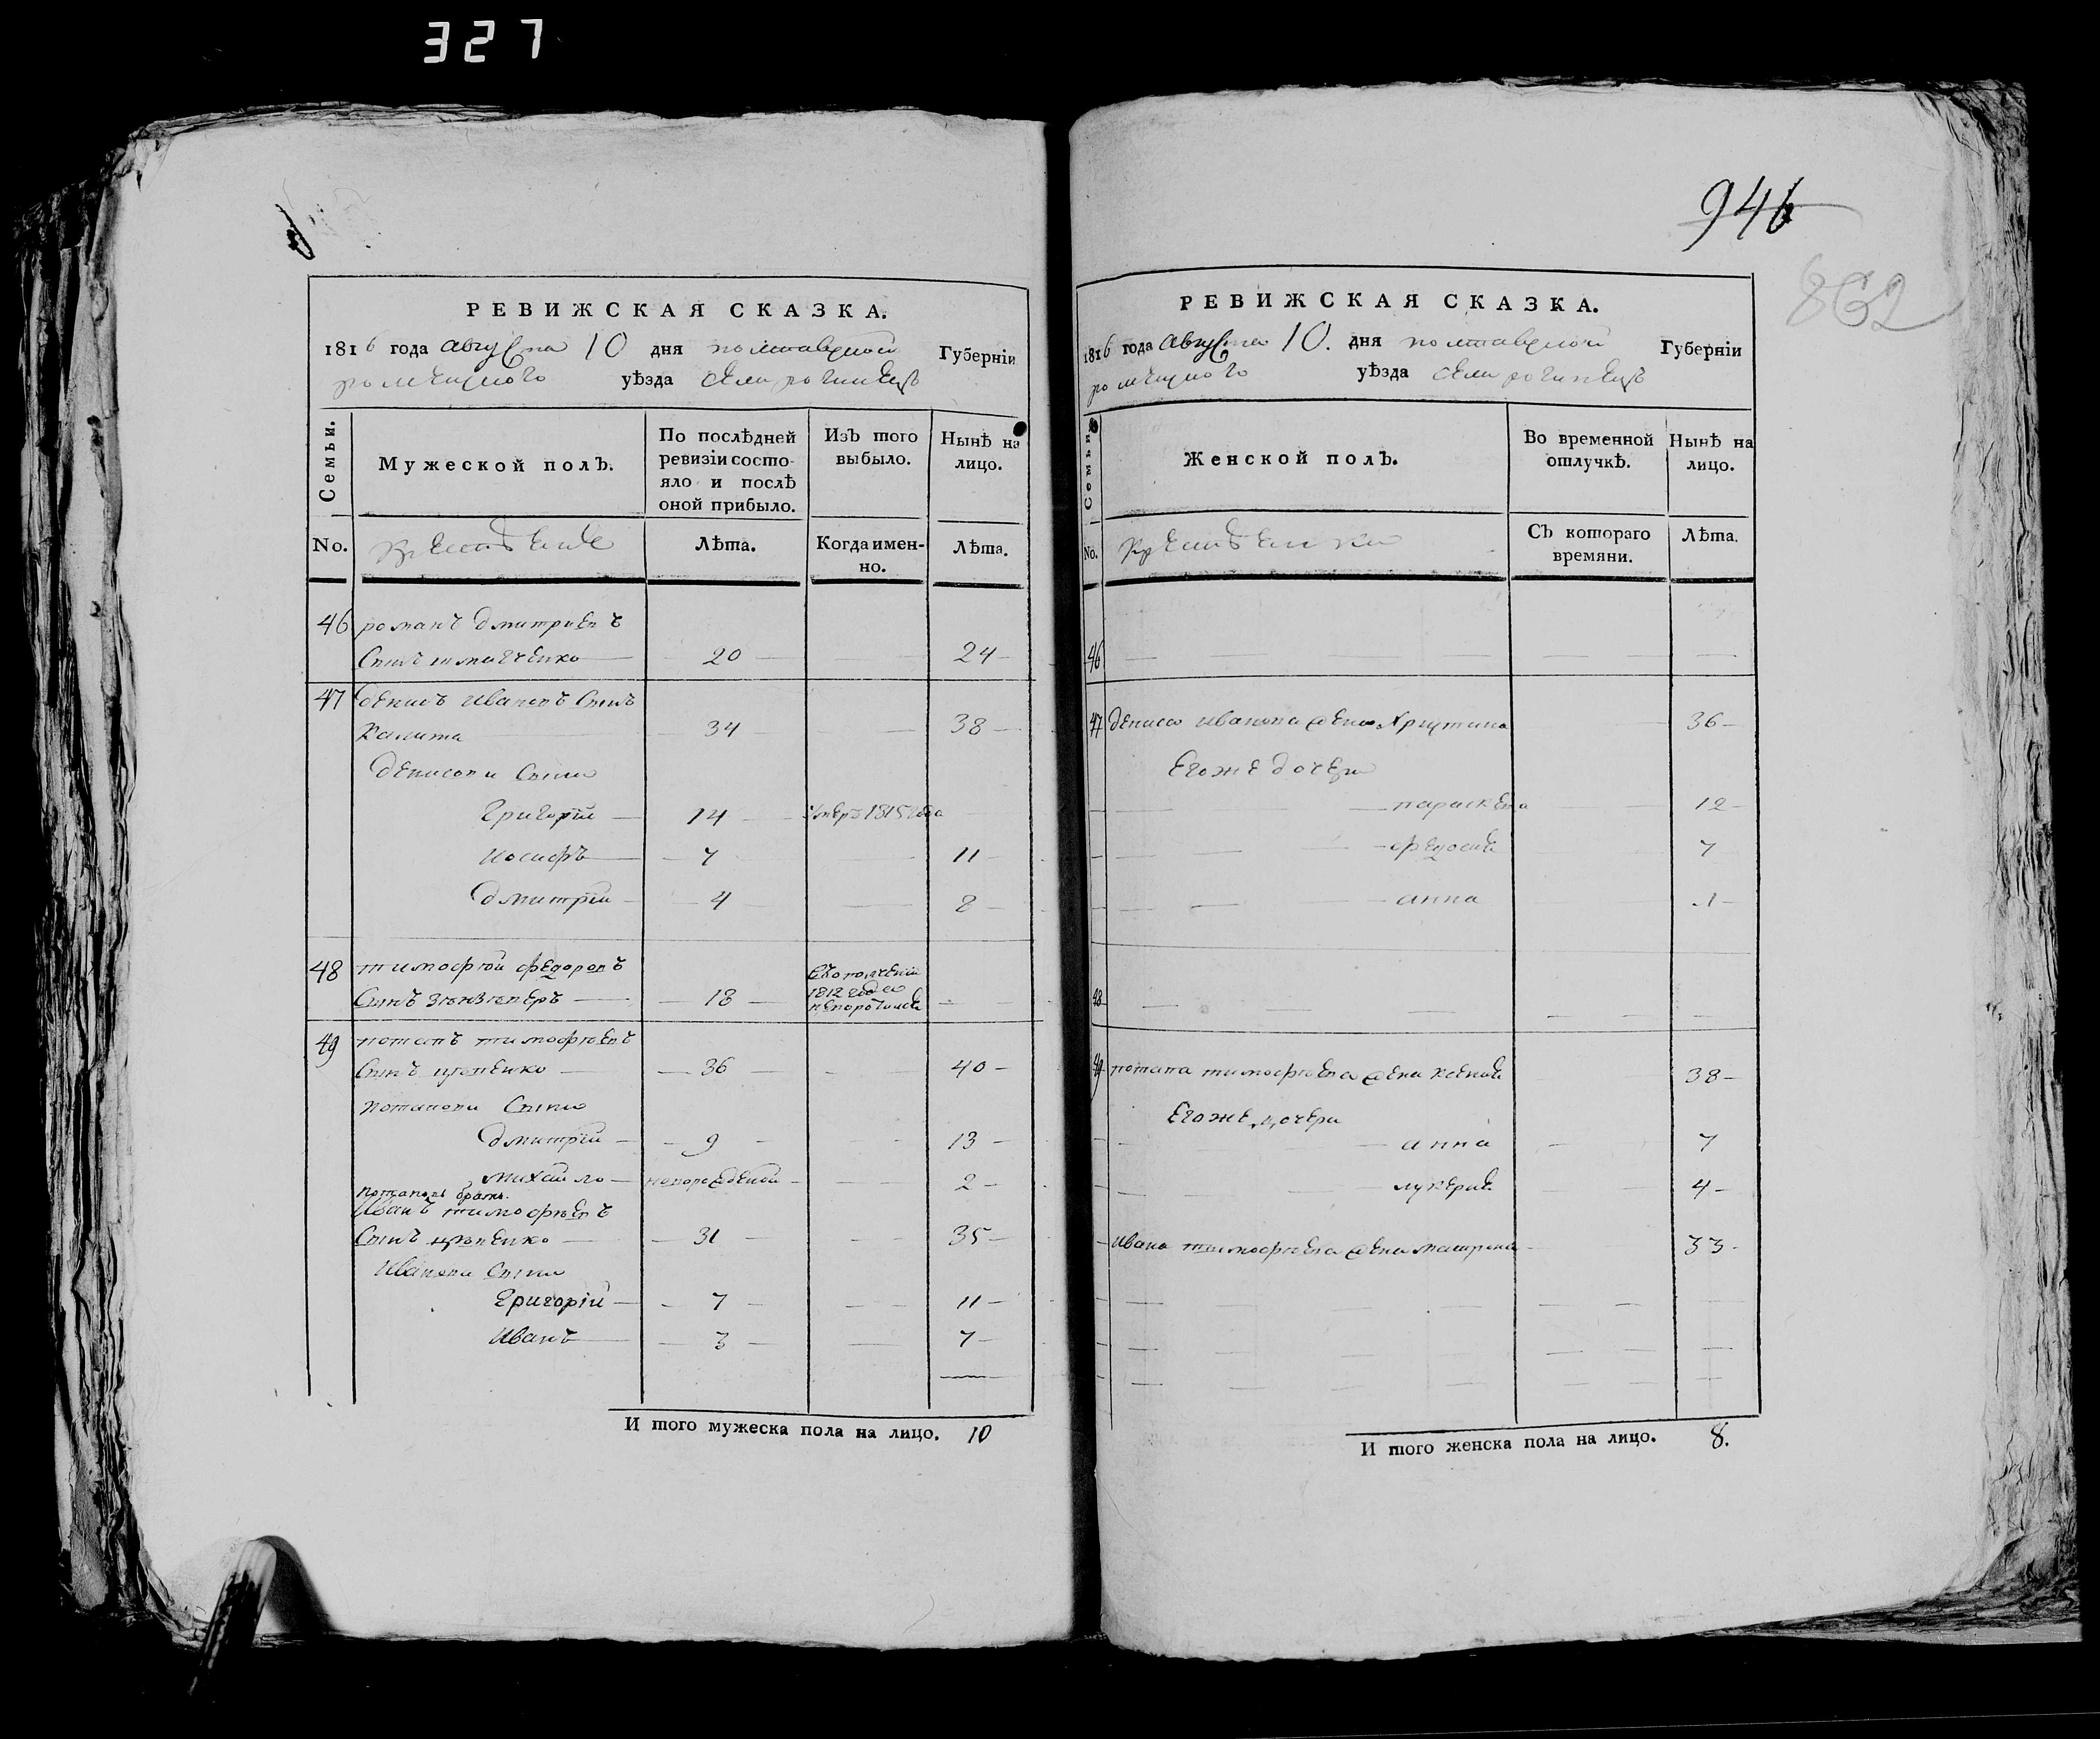 327
946
862
РЕВИЖСКАЯ СКАЗКА.
1816 года августа 10 дня полтавской Губерніи
роменского уѣзда
Семьи.
Мужеской полъ.
По послѣдней ревизіи состо-
яло и послѣ
оной прибыло.
Изъ того
выбыло.
Нынѣ на
лицо.
No.
Лѣта.
Когда имен-
но.
Лѣта.
46 романъ дмитриевъ
Сынъ 20 24
47 денисъ ивановъ Сынъ
Калита 34 38
денисови Сыни
григорій 14 умеръ 1815 года
иосифъ 7 11
дмитрій 4 8
48 тимофей федоровъ
Сынъ 18 1812 года 
49 потапъ тимофѣевъ
Сынъ 36 40
потапови Сыни
дмитрій 9 13
михайло новорожденой 2
потаповъ братъ
Иванъ тимофѣевъ
Сынъ 31 35
Иванови Сыни
григорій 7 11
Иванъ 3 7
И того мужеска пола на лицо. 10
РЕВИЖСКАЯ СКАЗКА.
1816 года августа 10. дня полтавской Губерніи
роменского уѣзда
Семьи.
Женской полъ.
Во временной
отлучкѣ.
Нынѣ на
лицо.
No.
Съ котораго
времяни.
Лѣта.
46
47 дениса иванова жена Христина 36
Егоже дочери
параскева 12
федосия 7
анна 1
48
49 потапа тимофѣева жена ксения 38
Егоже дочери
анна 7
лукерия 4
ивана тимофѣева жена матрона 33
И того женска пола на лицо. 8.